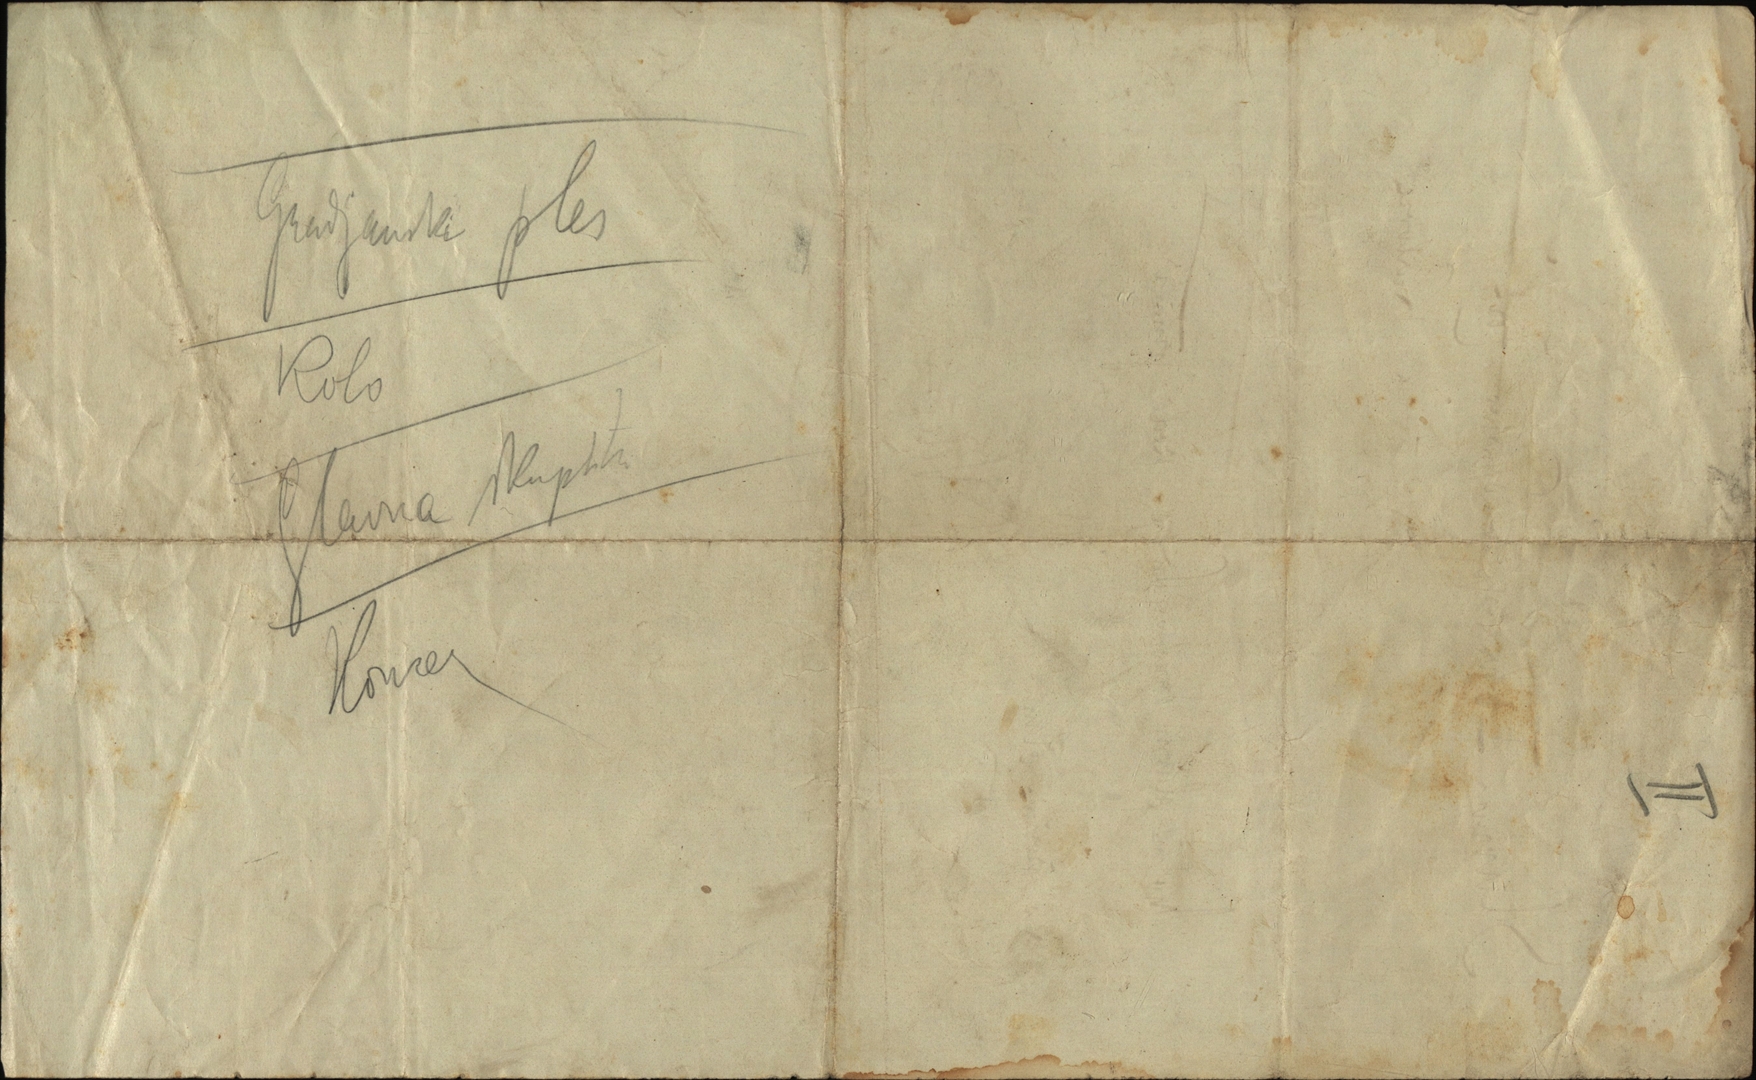 Gradjanski ples
Kolo
Glavna skupšt.
Koncer
II